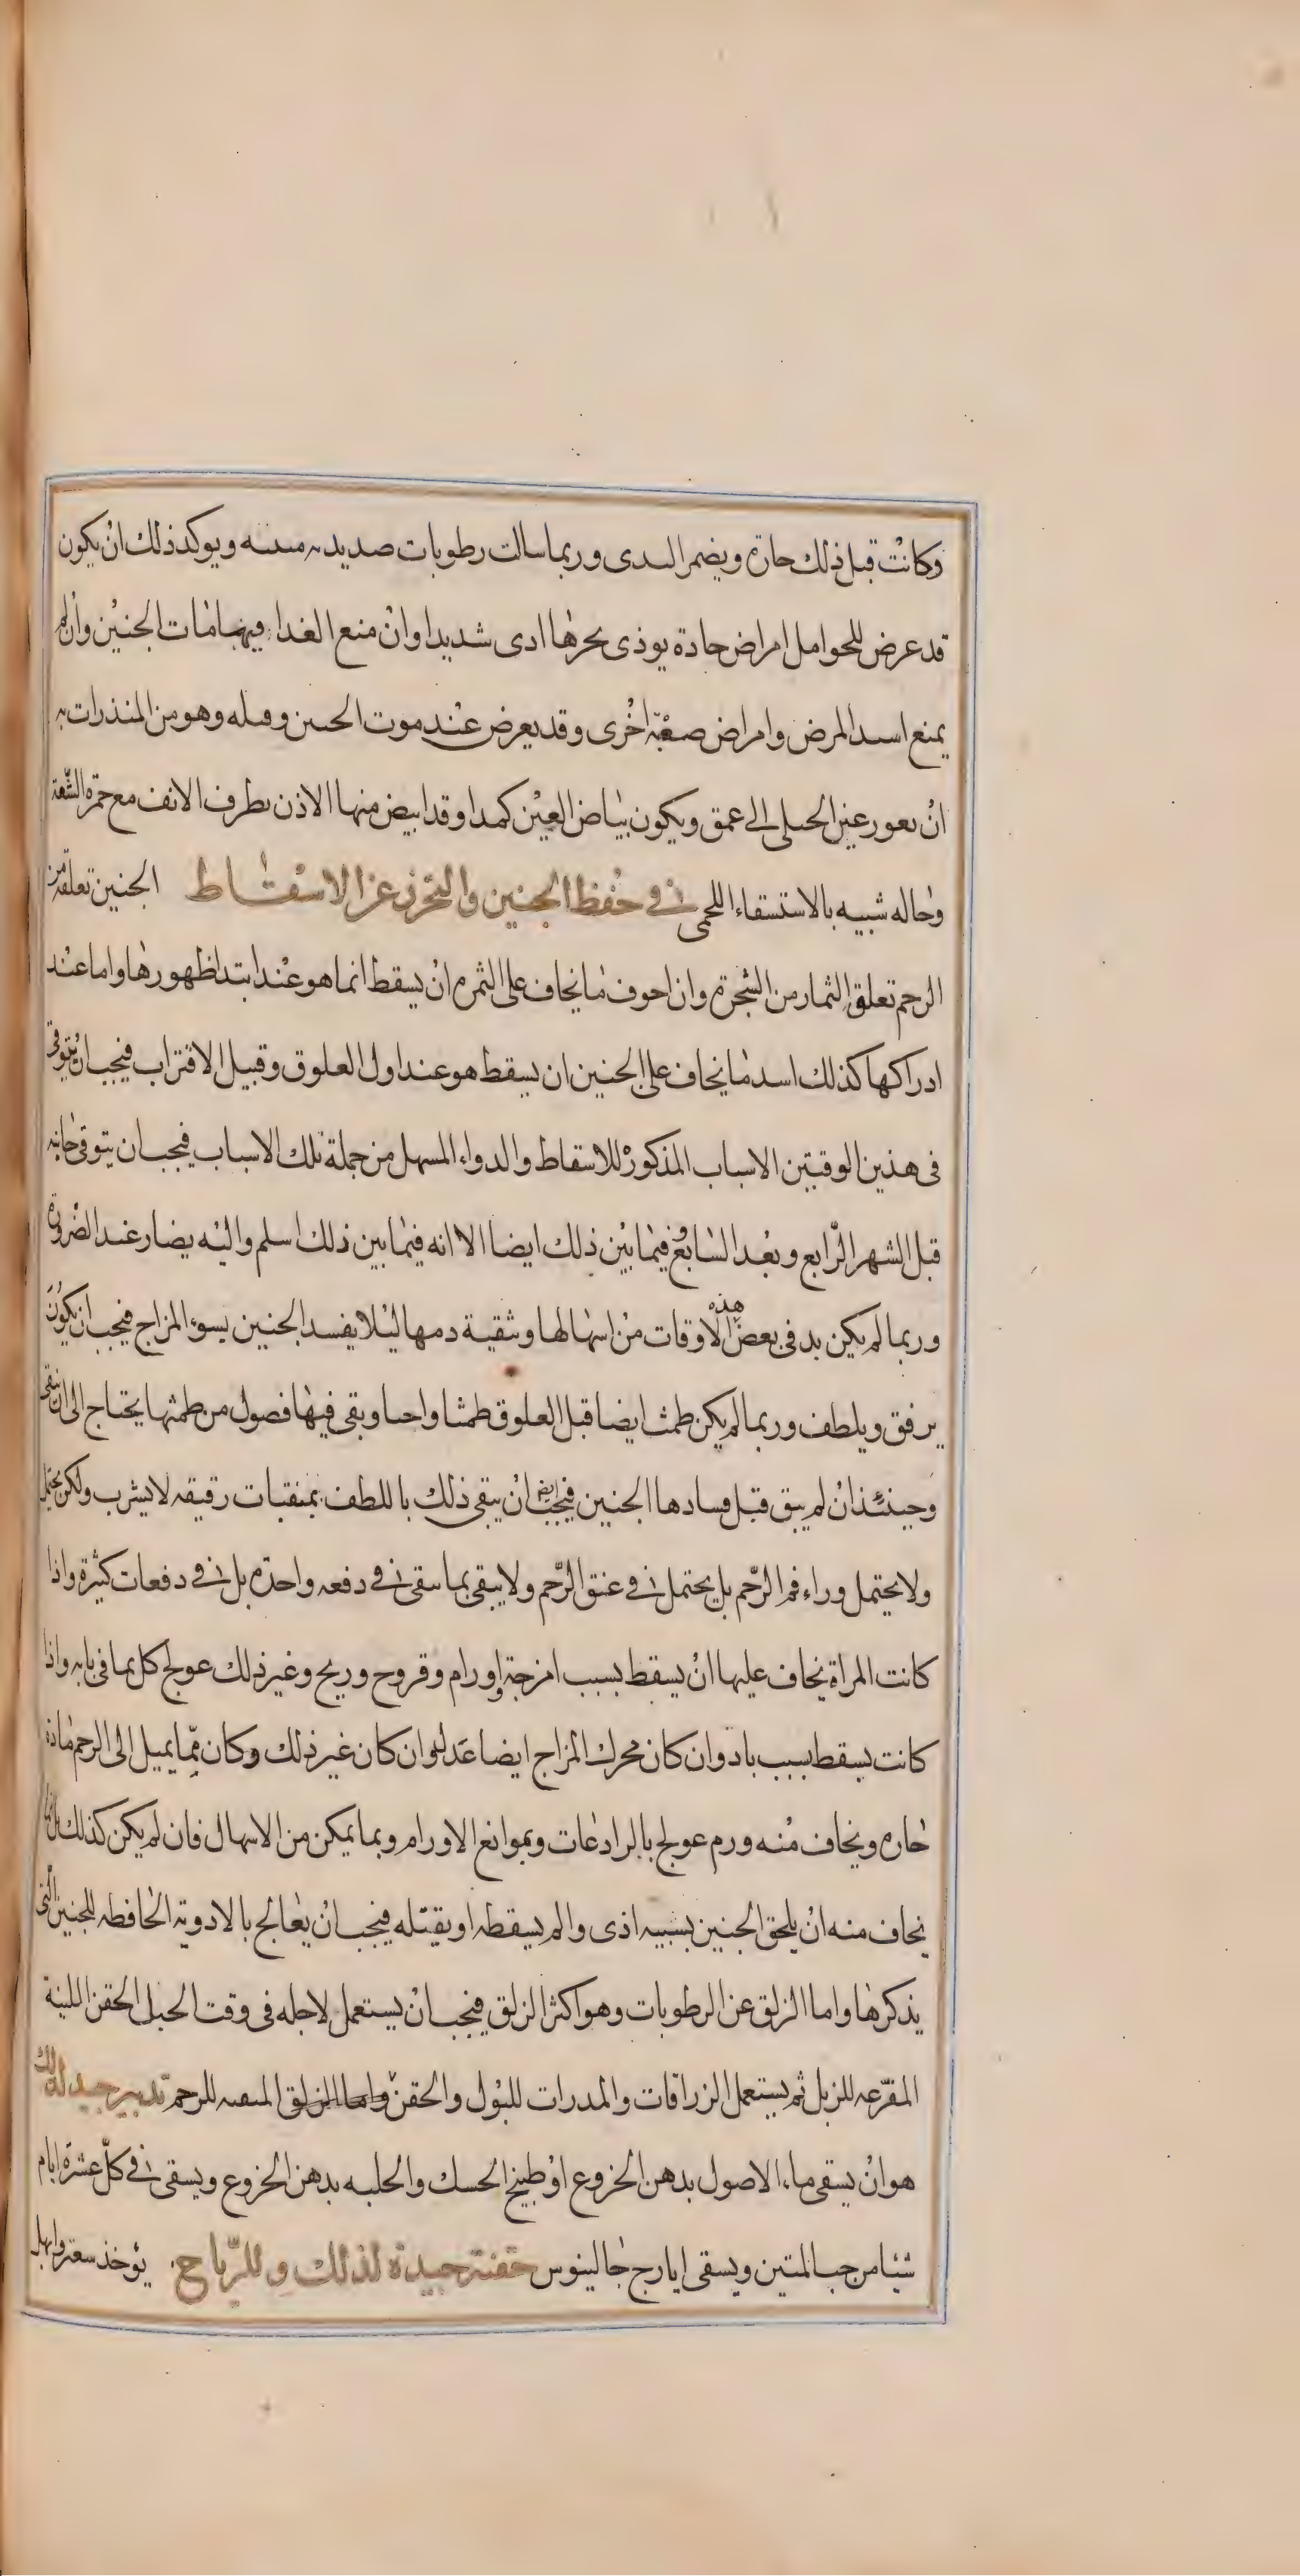 وكانت قبل ذلك حارة ويضمر الىدى وربما سالت رطوبات صديديه مىىىه ويوكد ذلك ان يكون
قد عرض للحوامل امراض حادة يوذى بحرها ادى شديدا وان منع الغداء فيها مات الجنين وان لم
يمنع اسىد المرض وامراض صعبة اخرى وقد يعرض عند موت الحىىن وقىله وهو من المنذرات به
ان ىعور عين الحىلى الى عمق ويكون بياض العين كمدا وقد ابيض منها الاذن ىطرف الانف مع حمرة الشفة
وحاله شبيه بالاستسقاء اللحمى فى حفظ الجنين والتحرز عن الاسقاط الجنين تعلقه من
الرحم تعلق الثمار من الشجرة وان احوف ما يخاف على الثمره ان يسقط انما هو عند ابتدا ظهورها واما عند
ادراكها كذلك اسد ما يخاف على الجنين ان يسقط هو عند اول العلوق وقبيل الاقتراب فيجب ان يتوقى
فى هذين الوقتين الاسباب المذكورة للاسقاط والدواء المسهل من جملة تلك الاسباب فيجب ان يتوقى جانبه
قبل الشهر الرابع وبعد السابع وفيما بين ذلك ايضا الا انه فيما بين ذلك اسلم واليه يصار عند الضرورة
وربما لم يكن بد فى بعض هذه الاوقات من اسهالها وتنقية دمها ليلا يفسد الجنين بسوء المزاج فيجب ان يكون
برفق ويلطف وربما لم يكن طمث ايضا قبل العلوق طمثا واحىا وبقى فيها فصول من طمثها يحتاج الى ان ينقى
وحينئذ ان لم يىق قبل فسادها الجنين فيجب ايضا ان ينقى ذلك باللطف بمنقيات رقيقه لا يشرب ولكن يحتمل
ولا يحتمل وراء فم الرحم بل يحتمل فى عنق الرحم ولا يبقى بما سقى فى دفعه واحدة بل فى دفعات كثيرة واذا
كانت المراة يخاف عليها ان يسقط بسبب امزجة واورام وقروح وريح وغير ذلك عولج كل بما فى بابه واذا
كانت يسقط بسبب باد وان كان محرك المزاج ايضا عدل وان كان غير ذلك وكان مما يميل الى الرحم مادة
حاره ويخاف منه ورم عولج بالرادعات وبموانع الاورام وبما يمكن من الاسهال فان لم يكن كذلك بل
يخاف منه ان يلحق الجنين بسببه اذى والم يسقطه او يقتله فيجب ان يعالج بالادوية الحافظه للجنين التى
يذكرها واما الزلق عن الرطوبات وهو اكثر الزلق فيجب ان يستعمل لاجله فى وقت الحبل الحقن اللينة
المقرعه للزبل ثم يستعمل الزراقات والمدرات للبول والحقن واما الزلق المىقىه للرحم تدبير جيد لذلك
هو ان يسقى ماء الاصول بدهن الخروع او طبيخ الحسك والحلبه بدهن الخروع ويسقى فى كل عشرة ايام
شيئا من حب المتين ويسقى ايارج جالينوس حقنة جيدة لذلك وللرياح يؤخذ سعتر وابهل